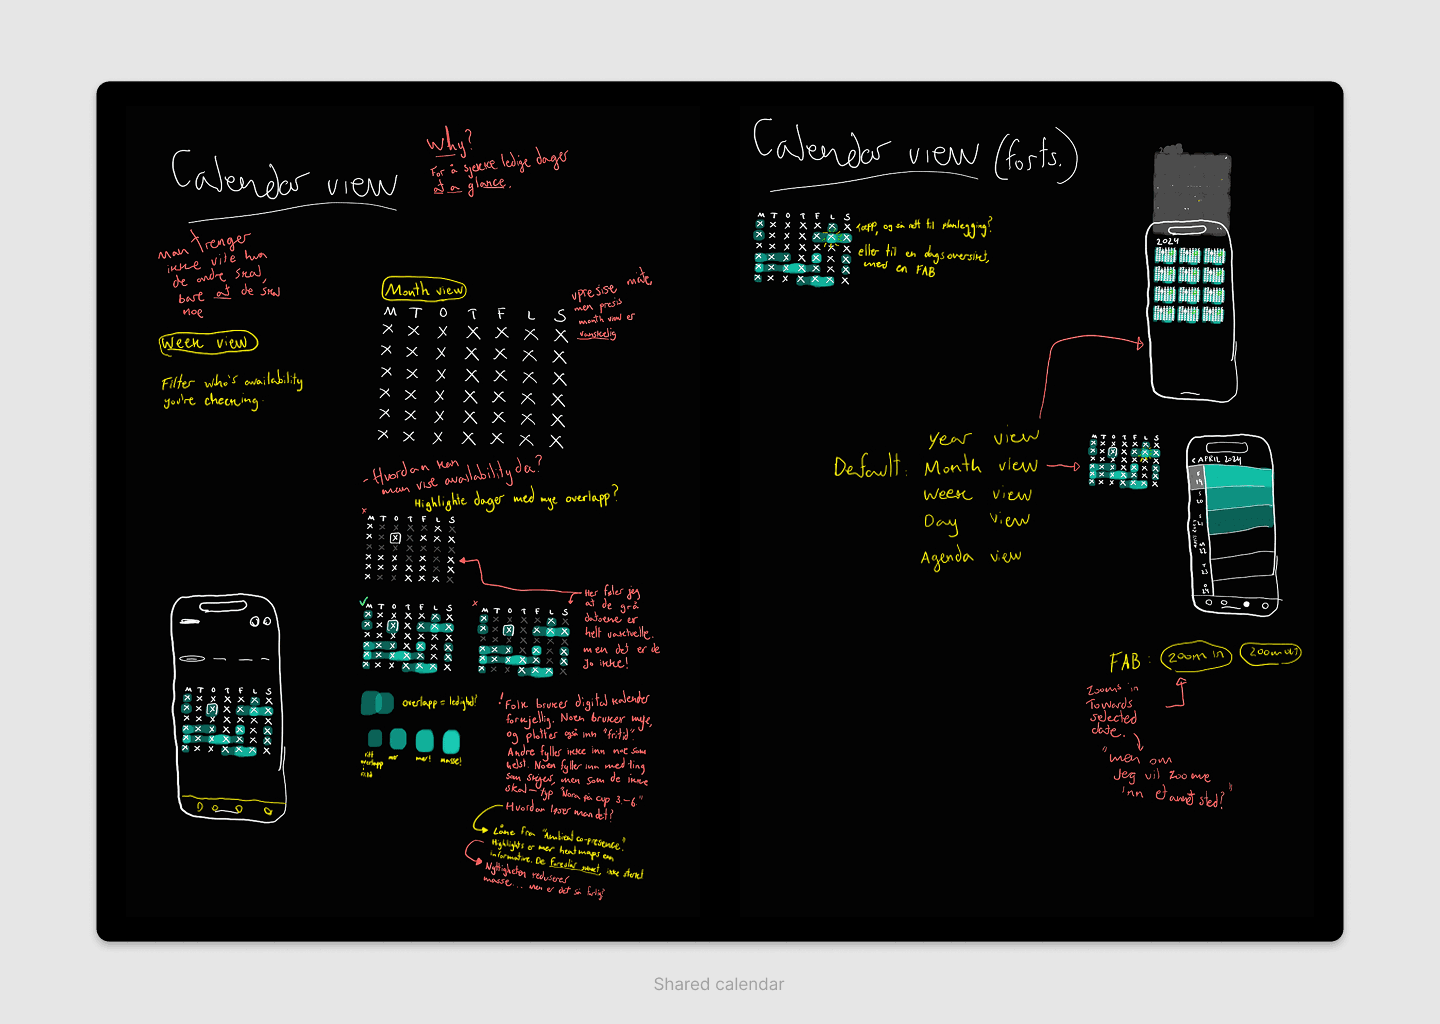 Calendar view
Why?
For å sjekke ledige dager
at a glance.
Man trenger
ikke vite hva
de andre skal,
bare at de skal
noe
Week view
Filter who's availability
you're checking.
Month view
M T O T F L S
X X X X X X X
X X X X X X X
X X X X X X X
X X X X X X X
X X X X X X X
X X X X X X X
upresise
men presis
month view er
vanskelig
- Hvordan kan
man vise availability da?
Highlighte dager med mye overlapp?
M T O T F L S
M T O T F L S
M T O T F L S
M T O T F L S
Her føler jeg
at de grå
datoene er
helt uaktuelle.
men det er de
jo ikke!
overlapp = ledighet!
litt
overlapp
mer
mer!
masse!
! Folk bruker digital kalender
forskjellig. Noen bruker mye,
og plotter også inn "fritid".
Andre fyller ikke inn noe som
helst. Noen fyller inn med ting
som skjer, men som de ikke
skal - typ "Norway cup 3.-6"
Hvordan løser man det?
Låne fra "Ambient co-presence."
Highlights er mer heatmaps enn
informative. De foreslår noe, ikke
Nyttigheten reduseres
masse... men er det så farlig?
Calendar view (forts.)
M T O T F L S
Tapp, og så rett til planlegging?
eller til en dagsoversikt,
med en FAB
2024
Default:
Year view
Month view
Week view
Day view
Agenda view
M T O T F L S
< APRIL 2024
FAB:
zoom in
zoom out
Zooms in
Towards
selected
date.
"men om
jeg vil zoome
inn et annet sted?"
Shared calendar